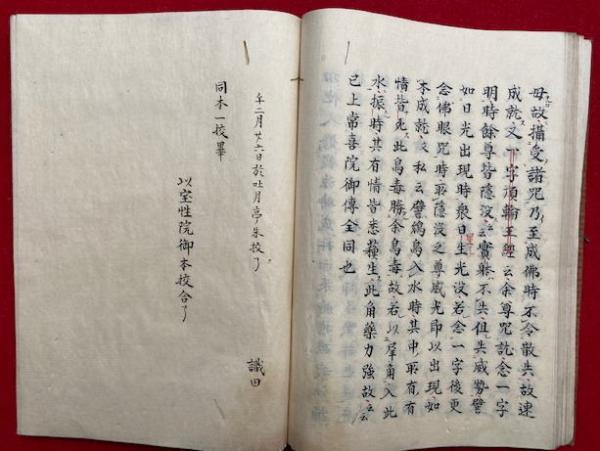 母故攝受諸咒乃至成佛時不令散失故速
成就又一字頂輪王經云余尊咒訖念一字
明時餘尊皆隱沒云云實不失但失威勢譬
如日光出現時衆星光沒若念一字後更
念佛眼咒時所隱沒之尊威光即以出現如
本成就文私云譬鴆鳥入水時其中所有有
情皆死此鳥毒勝余鳥毒故若以犀角入此
水振時其有情皆悉生此角藥力強故云云
已上常喜院御傳全同也
午二月廿六日於吐月亭朱挍了
同本一挍畢
以宝性院御本挍合了
識田